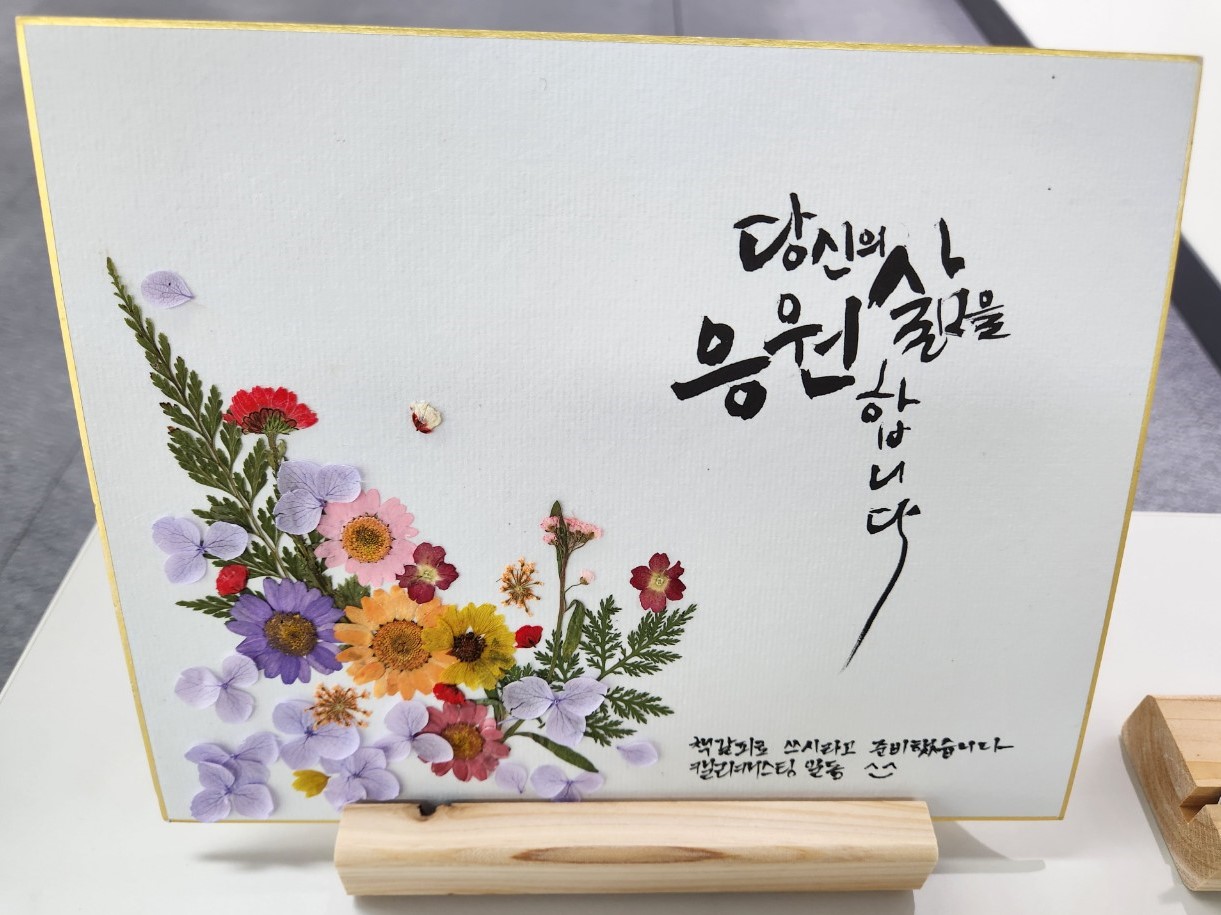 당신의 삶을
응원
합
니
다
책갈피로 쓰시라고 준비했습니다
캘리커스팅 일동 ^^